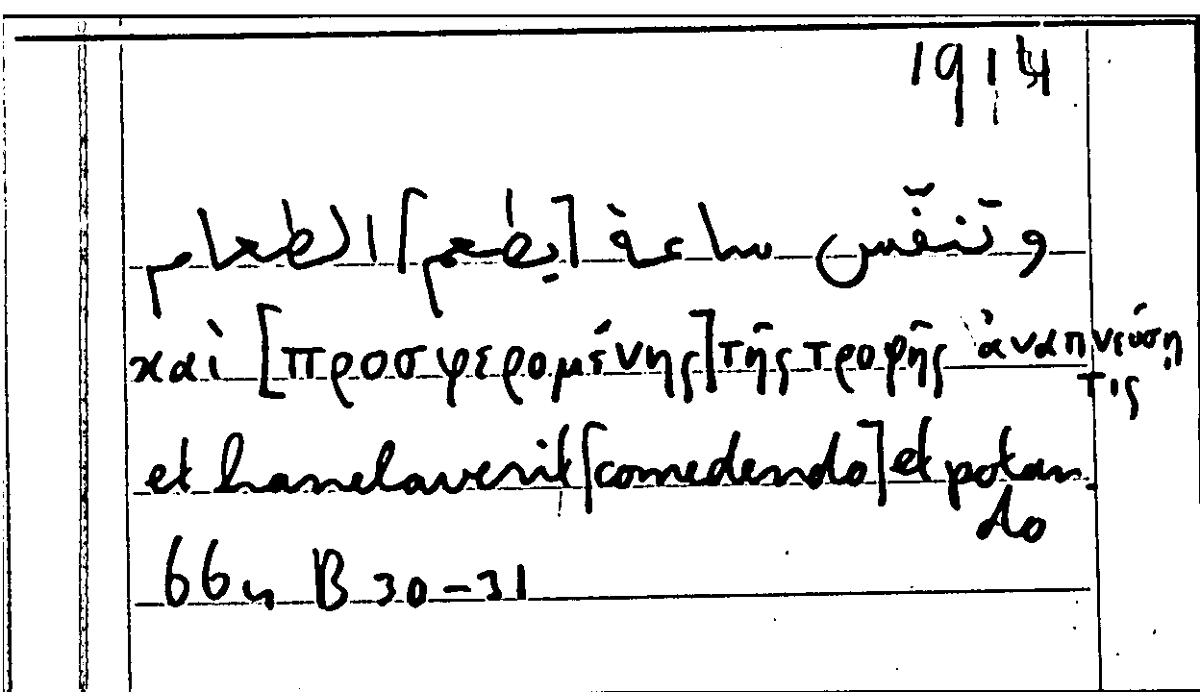 1914
وتنفّس ساعة [يطعم] الطعام
καὶ [προσφερομένης] τῆς τροφῆς ἀναπνεύσῃ
τις
et hanelaverit [comedendo] et potan
do
664 B 30-31